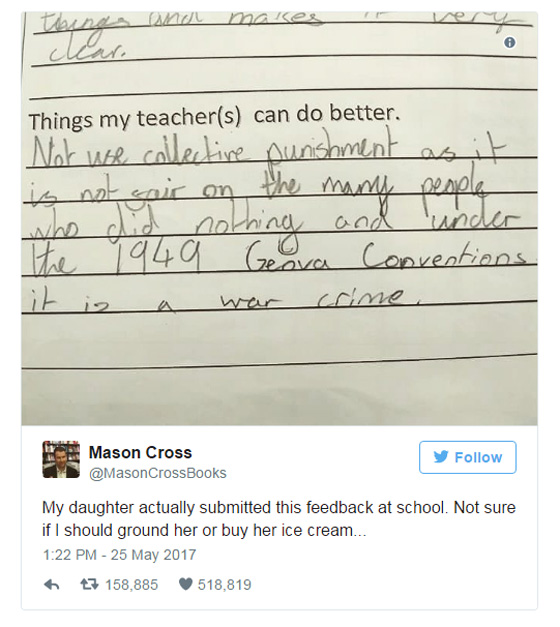 things and makes it very
clear.
Things my teacher(s) can do better.
Not use collective punishment as it
is not fair on the many people
who did nothing and under
the 1949 Geneva Conventions
it is a war crime.
Mason Cross
@MasonCrossBooks
Follow
My daughter actually submitted this feedback at school. Not sure
if I should ground her or buy her ice cream...
1:22 PM - 25 May 2017
158,885 518,819